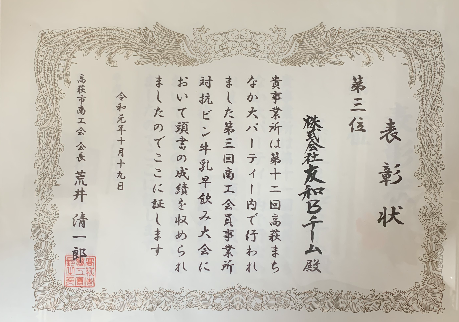 表彰状
第三位
株式会社友和Bチーム殿
貴事業所は第十二回高萩まち
なか大パーティー内で行われ
ました第三回商工会員事業所
対抗ビン牛乳早飲み大会に
おいて頭書の成績を収められ
ましたのでここに証します
令和元年十月十九日
高萩市商工会 会長 荒井 清一郎